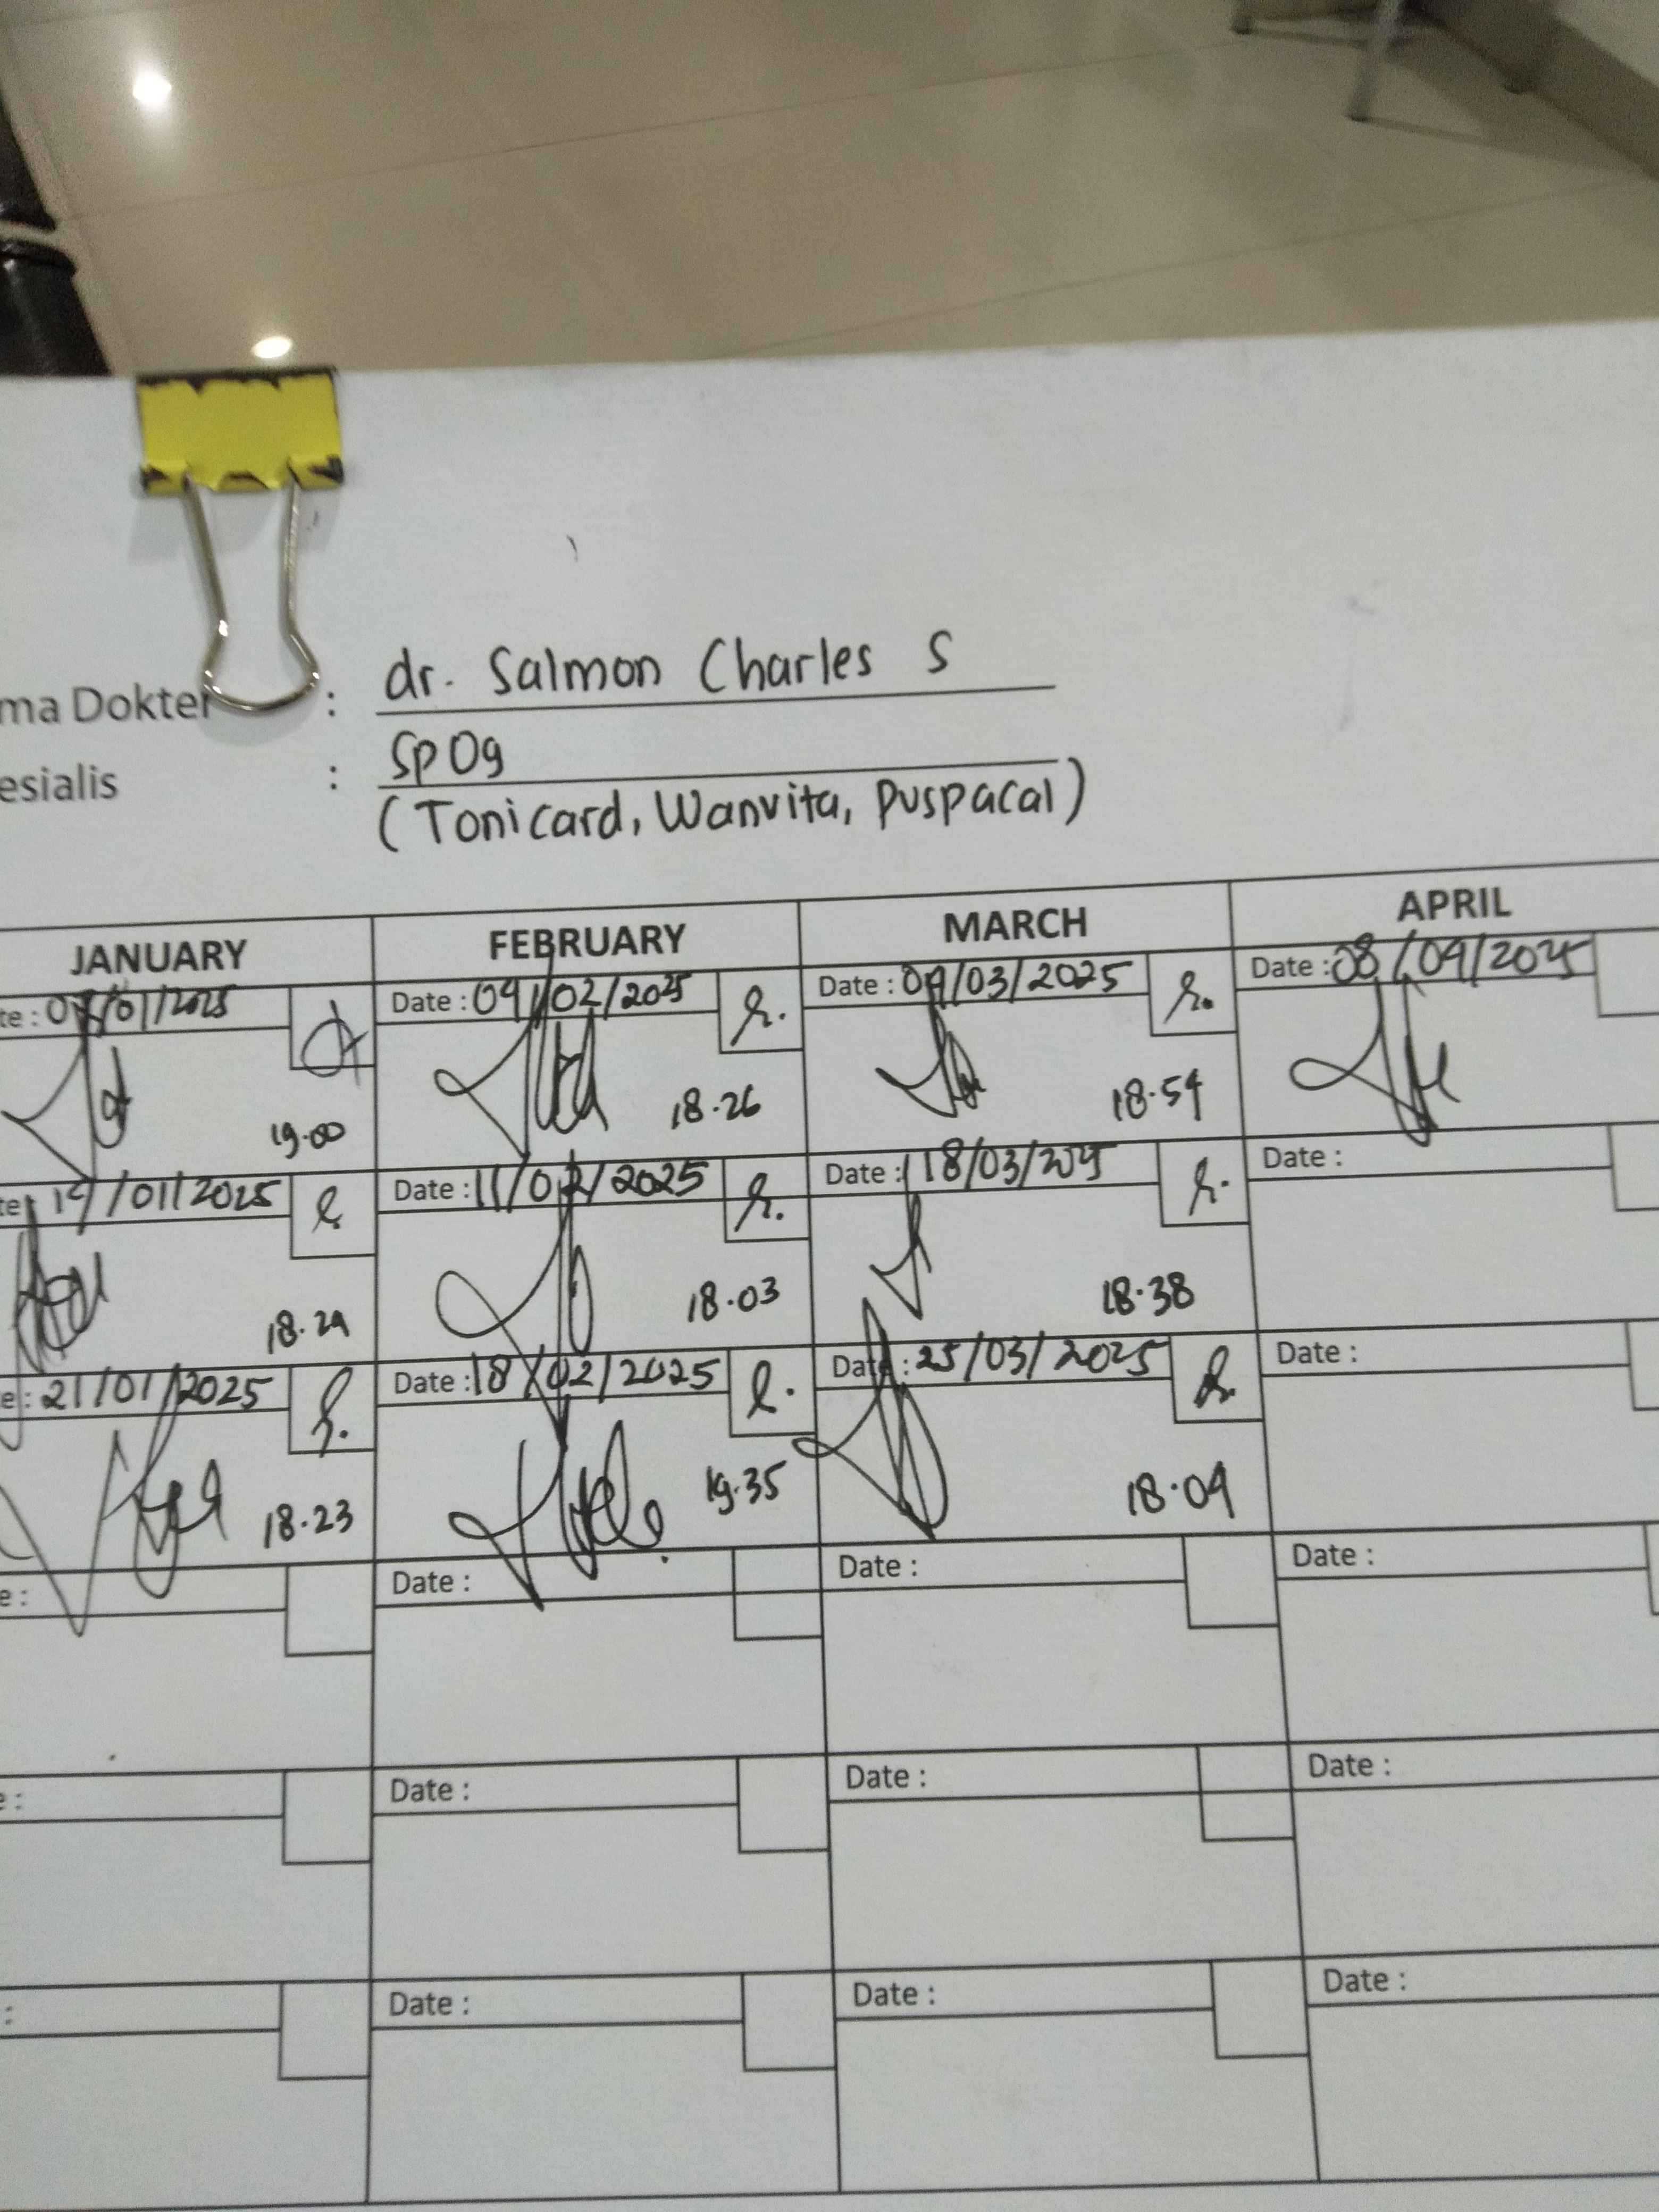 ma Dokter : dr. Salmon Charles S
esialis : SpOg
(Tonicard, Wanvita, Puspacal)
JANUARY FEBRUARY MARCH APRIL
te : /01/2025 Date : 04/02/2025 Date : 04/03/2025 Date : 08/04/2025
19.00 18.26 18.54
te : 14/01/2025 Date : 11/02/2025 Date : 18/03/2025 Date :
18.29 18.03 18.38
e : 21/01/2025 Date : 18/02/2025 Date : 25/03/2025 Date :
18.23 19.35 18.09
e : Date : Date : Date :
e : Date : Date : Date :
: Date : Date : Date :